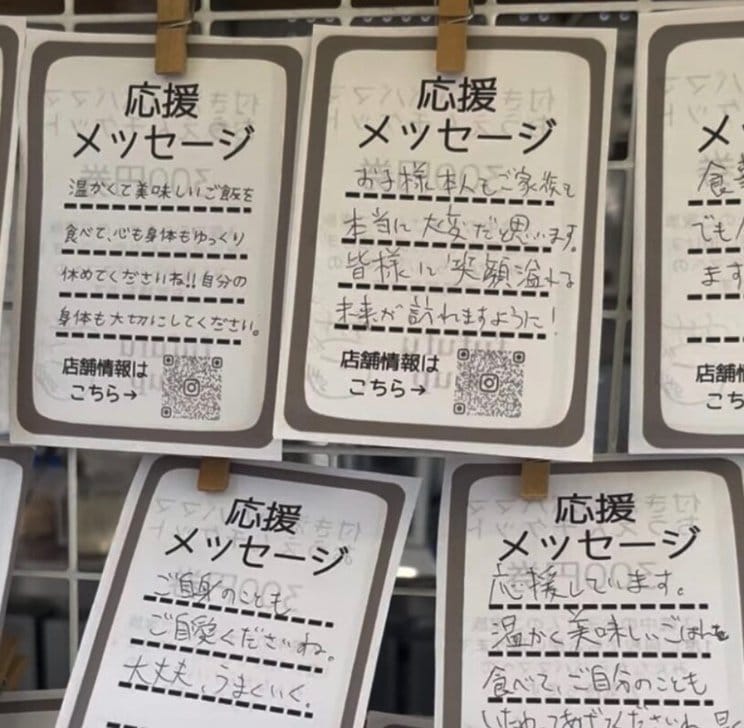 応援
メッセージ
温かくて美味しいご飯を
食べて、心も身体もゆっくり
休めてくださいね!!自分の
身体も大切にしてください。
店舗情報は
こちら→
応援
メッセージ
お子様本人もご家族も
本当に大変だと思います。
皆様に笑顔溢れる
未来が訪れますように!
店舗情報は
こちら→
メッ
食事
でも
ます
店舗情
こち
応援
メッセージ
ご自身のことも
ご自愛くださいね。
大丈夫、うまくいく。
応援
メッセージ
応援しています。
温かく美味しいごはんを
食べて、ご自分のことも
いたわってあげてくださいね